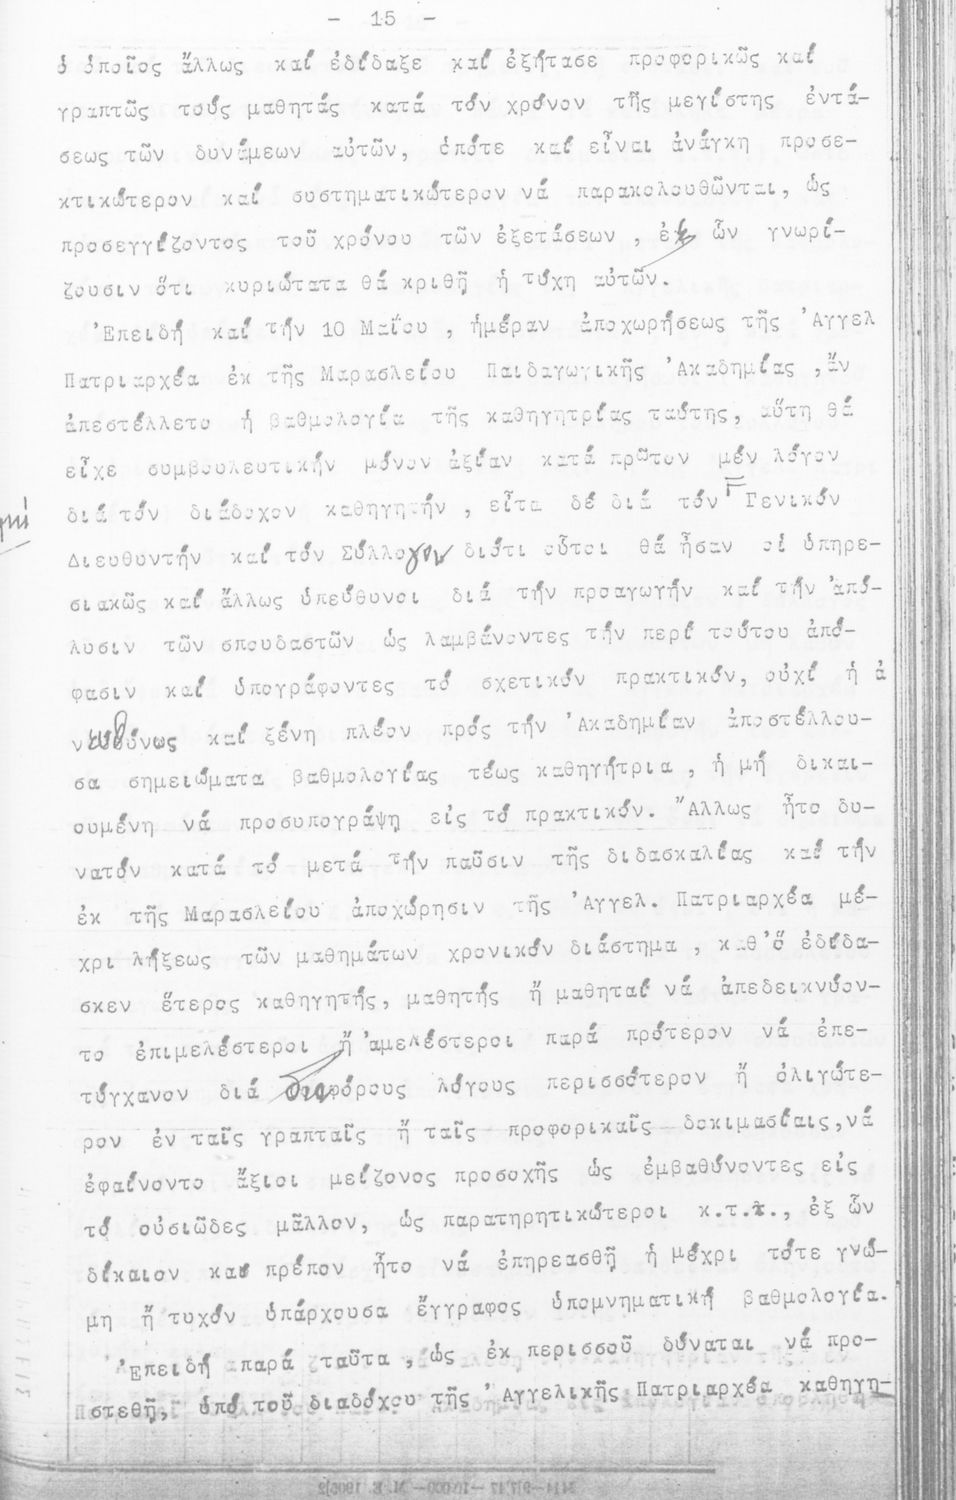 - 15 -
ὁ ὁποῖος ἄλλως καί ἐδίδαξε καί ἐξήτασε προφορικῶς καί
γραπτῶς τούς μαθητάς κατά τόν χρόνον τῆς μεγίστης ἐντά-
σεως τῶν δυνάμεων αὐτῶν, ὁπότε καί εἶναι ἀνάγκη προσε-
κτικώτερον καί συστηματικώτερον νά παρακολουθῶνται, ὡς
προσεγγίζοντος τοῦ χρόνου τῶν ἐξετάσεων, ἐξ ὧν γνωρί-
ζουσιν ὅτι κυριώτατα θά κριθῇ ἡ τύχη αὐτῶν.
Ἐπειδή καί τήν 10 Μαΐου, ἡμέραν ἀποχωρήσεως τῆς Ἀγγελ
Πατριαρχέα ἐκ τῆς Μαρασλείου Παιδαγωγικῆς Ἀκαδημίας, ἄν
ἀπεστέλλετο ἡ βαθμολογία τῆς καθηγητρίας ταύτης, αὕτη θά
εἶχε συμβουλευτικήν μόνον ἀξίαν κατά πρῶτον μέν λόγον
διά τόν διάδοχον καθηγητήν, εἶτα δέ διά τόν Γενικόν
Διευθυντήν καί τόν Σύλλογον διότι οὗτοι θά ἦσαν οἱ ὑπηρε-
σιακῶς καί ἄλλως ὑπεύθυνοι διά τήν προαγωγήν καί τήν ἀπό-
λυσιν τῶν σπουδαστῶν ὡς λαμβάνοντες τήν περί τούτου ἀπό-
φασιν καί ὑπογράφοντες τό σχετικόν πρακτικόν, οὐχί ἡ ἀ
νευθύνως καί ξένη πλέον πρός τήν Ἀκαδημίαν ἀποστέλλου-
σα σημειώματα βαθμολογίας τέως καθηγήτρια, ἡ μή δικαι-
ουμένη νά προσυπογράψῃ εἰς τό πρακτικόν. Ἄλλως ἦτο δυ-
νατόν κατά τό μετά τήν παῦσιν τῆς διδασκαλίας καί τήν
ἐκ τῆς Μαρασλείου ἀποχώρησιν τῆς Ἀγγελ. Πατριαρχέα μέ-
χρι λήξεως τῶν μαθημάτων χρονικόν διάστημα, καθ' ὅ ἐδίδα-
σκεν ἕτερος καθηγητής, μαθητής ἤ μαθηταί νά ἀπεδεικνύον-
το ἐπιμελέστεροι ἤ ἀμελέστεροι παρά πρότερον νά ἐπε-
τύγχανον διά διαφόρους λόγους περισσότερον ἤ ὀλιγώτε-
ρον ἐν ταῖς γραπταῖς ἤ ταῖς προφορικαῖς δοκιμασίαις, νά
ἐφαίνοντο ἄξιοι μείζονος προσοχῆς ὡς ἐμβαθύνοντες εἰς
τό οὐσιῶδες μᾶλλον, ὡς παρατηρητικώτεροι κ.τ.λ., ἐξ ὧν
δίκαιον καί πρέπον ἦτο νά ἐπηρεασθῇ ἡ μέχρι τότε γνώ-
μη ἤ τυχόν ὑπάρχουσα ἔγγραφος ὑπομνηματική βαθμολογία.
Ἐπειδή παρά ταῦτα, ὡς ἐκ περισσοῦ δύναται νά προ-
στεθῇ, ὑπό τοῦ διαδόχου τῆς Ἀγγελικῆς Πατριαρχέα καθηγη-